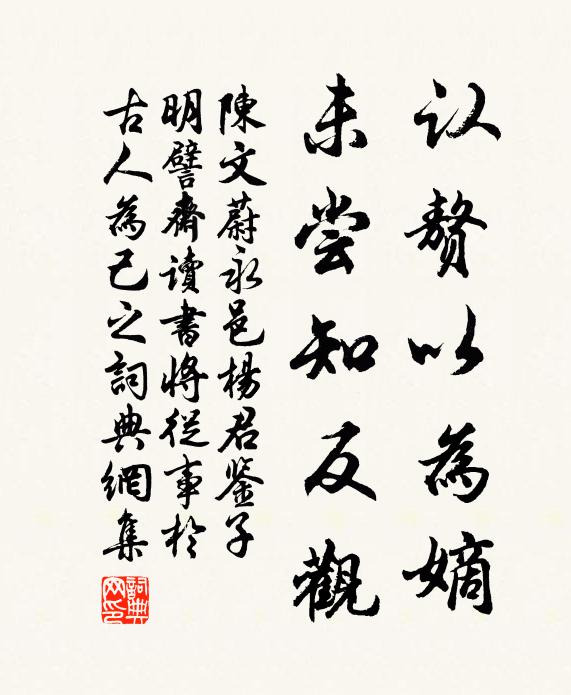 认赘以為嫡
未尝知反觀
陳文蔚永邑楊君鉴子
明譬齋讀書将從事於
古人為己之詞典網集
詞典网印